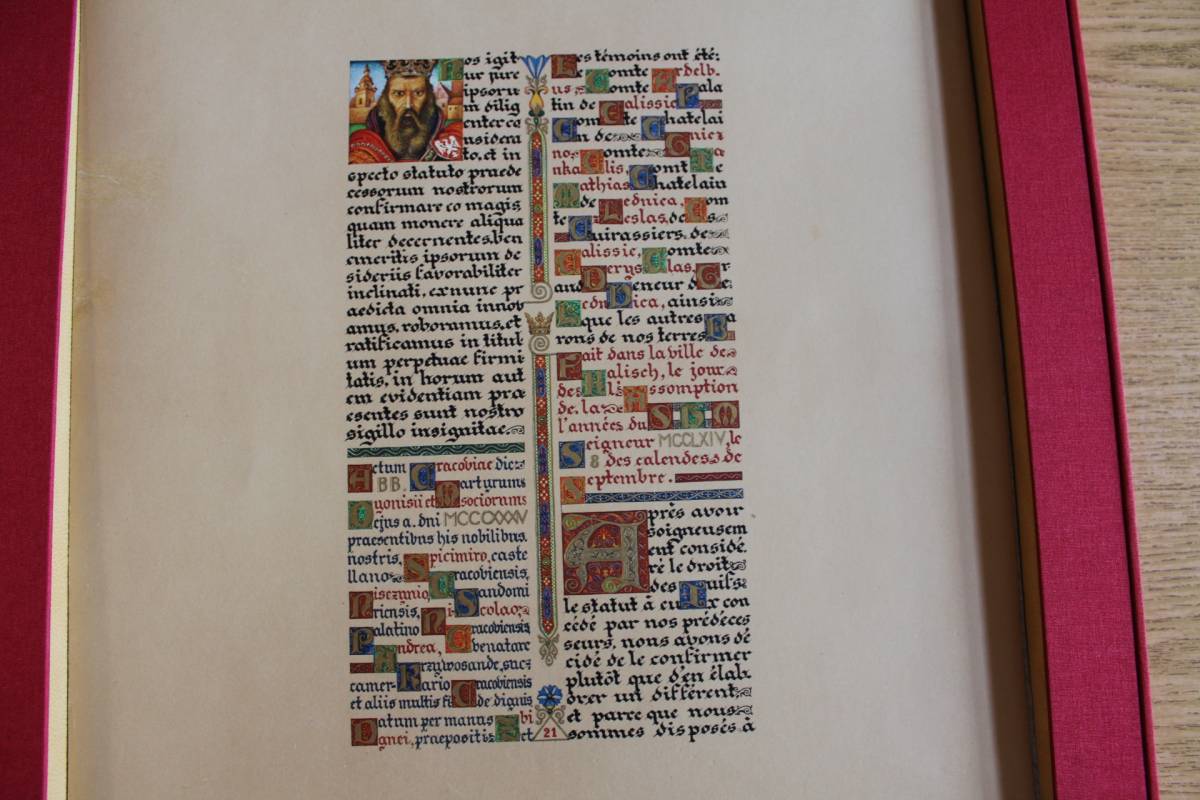 Nos igit
ur jure
ipsoru
m dilig
enter co
nsidera
to, et in
specto statuto praede
cessorum nostrorum
confirmare eo magis,
quam monere aliqua
liter decernentes, ben
emeritis ipsorum de
sideriis favorabiliter
inclinati, exnunc pr
aedicta omnia innov
amus, roboramus, et
ratificamus in titul
um perpetuae firmi
tatis, in horum aut
em evidentiam pra
esentes sunt nostro
sigillo insignitae.
Actum Cracoviae die
BB. Martyrum
Dyonisii et Sociorum
ejus a. dni MCCCXXXV
praesentibus his nobilibus.
nostris, Spicimiro, caste
llano Cracoviensis,
Sandomi
riensis, Nicolao
Palatino Cracoviensis
Andrea,
Przywosande, suc
camerario Cracoviensis
et aliis multis fide dignis
Datum per manus Zbi
gnei, praepositi et
Les témoins ont été:
Comte Ardelb.
us Comte Pala
tin de Calissie
Comte Chatelai
n de Gniez
no, Comte
Chatelain
de Lednica, Com
te
Cuirassiers, de
Calissie, Comte
and Veneur de
Lednica, ainsi
que les autres Ba
rons de nos terres
Fait dans la ville de
Kalisch, le jour
de l'Assomption
de la
l'années du
Seigneur MCCLXIV, le
8 des calendes de
Septembre.
Après avoir
soigneusem
ent considé.
ré le droit
des Juifs
le statut à eux con
cédé par nos prédéces
seurs, nous avons dé
cidé de le confirmer
plutôt que d'en élab
orer un différent
et parce que nous
sommes disposés à
21